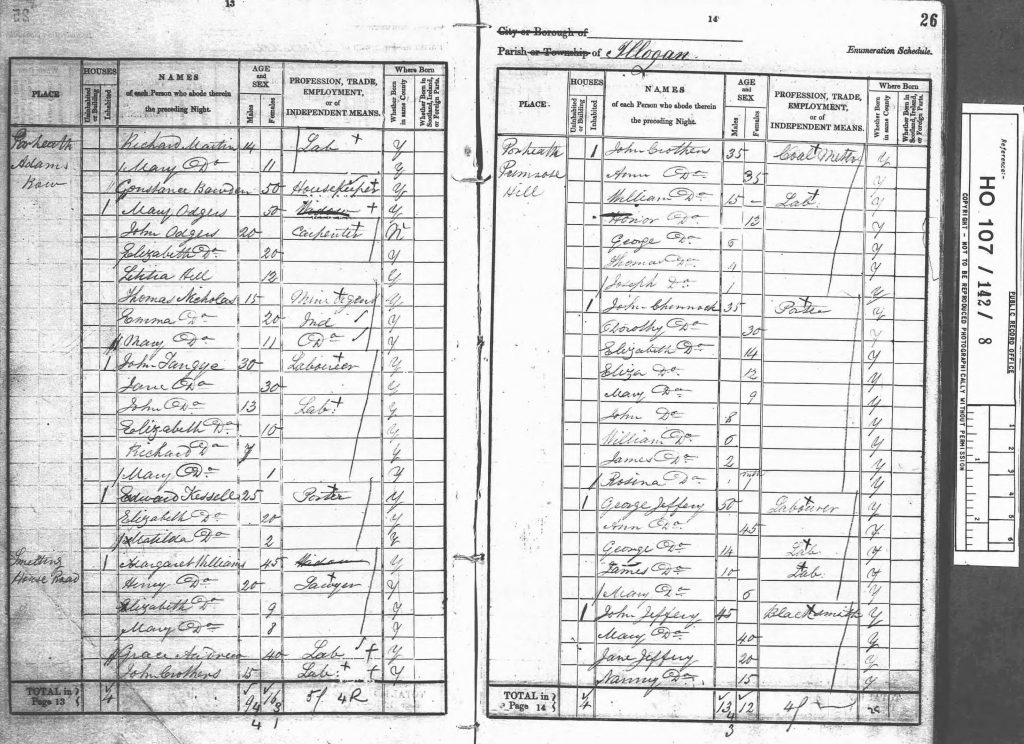 13
PLACE
HOUSES
Uninhabited or Building
Inhabited
NAMES
of each Person who abode therein
the preceding Night.
AGE and SEX
Males
Females
PROFESSION, TRADE,
EMPLOYMENT,
or of
INDEPENDENT MEANS.
Where Born
Whether Born in same County
Whether Born in Scotland, Ireland, or Foreign Parts.
Richard Martin 14 Lab Y
Adams Mary Do 11 Y
Row Constance Bawden 50 Housekeeper Y
1 Mary Odgers 50 Y
John Odgers 20 Carpenter N
Elizabeth Do 20 Y
Letitia Hill 12 Y
Thomas Nicholas 15 Y
Emma Do 20 Ind Y
Mary Do 11 Do Y
1 John Tangye 30 Labourer Y
Jane Do 30 Y
John Do 13 Lab Y
Elizabeth Do 10 Y
Richard Do 7 Y
Mary Do 1 Y
1 Edward Kessell 25 Porter Y
Elizabeth Do 20 Y
Matilda Do 2 Y
Smelting 1 Margaret Williams 45 Y
House Road Henry Do 20 Sawyer Y
Elizabeth Do 9 Y
Mary Do 8 Y
Grace Andrew 40 Lab Y
John Crothers 15 Lab Y
TOTAL in Page 13 4
14
26
City or Borough of
Parish or Township of Illogan
Enumeration Schedule.
PLACE
HOUSES
Uninhabited or Building
Inhabited
NAMES
of each Person who abode therein
the preceding Night.
AGE and SEX
Males
Females
PROFESSION, TRADE,
EMPLOYMENT,
or of
INDEPENDENT MEANS.
Where Born
Whether Born in same County
Whether Born in Scotland, Ireland, or Foreign Parts.
1 John Crothers 35 Coal Y
Primrose Ann Do 35 Y
Hill William Do 15 Lab Y
Honor Do 13 Y
George Do 6 Y
Thomas Do 4 Y
Joseph Do 1 Y
1 John Chennock 35 Y
Dorothy Do 30 Y
Elizabeth Do 14 Y
Eliza Do 12 Y
Mary Do 9 Y
John Do 8 Y
William Do 6 Y
James Do 2 Y
Rosina Do Y
1 George Jeffery 50 Labourer Y
Ann Do 45 Y
George Do 14 Lab Y
James Do 10 Lab Y
Mary Do 6 Y
1 John Jeffery 45 Blacksmith Y
Mary Do 40 Y
Jane Jeffery 20 Y
Nanny Do 15 Y
TOTAL in Page 14 4 13 12
Reference:-
HO 107/142/8
PUBLIC RECORD OFFICE
COPYRIGHT - NOT TO BE REPRODUCED PHOTOGRAPHICALLY WITHOUT PERMISSION